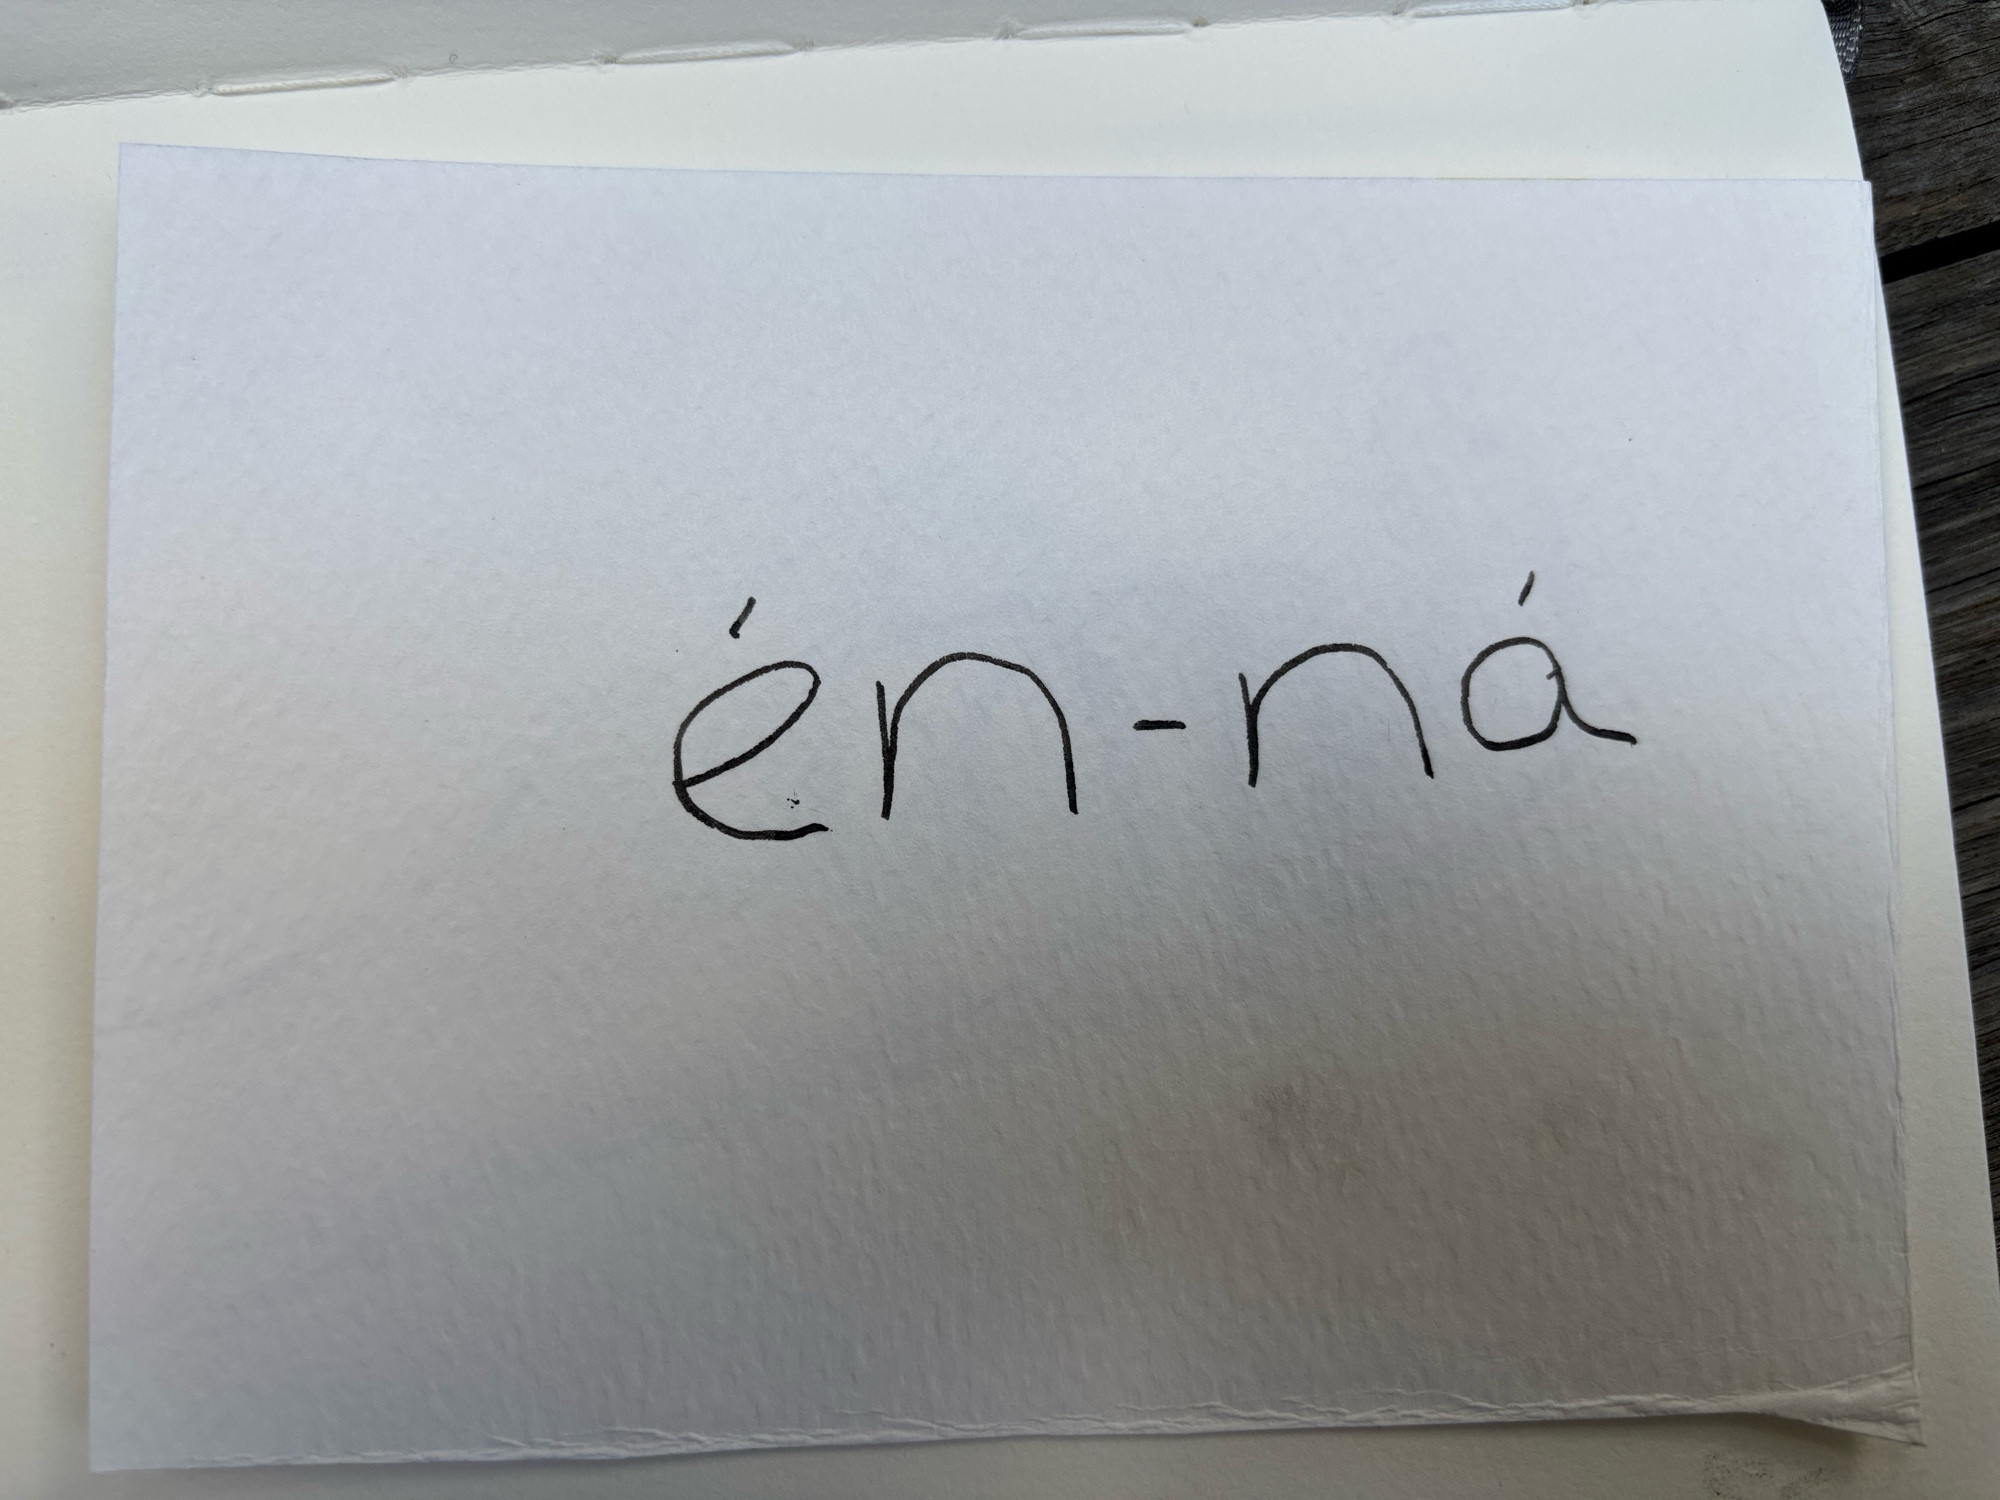 én-ná